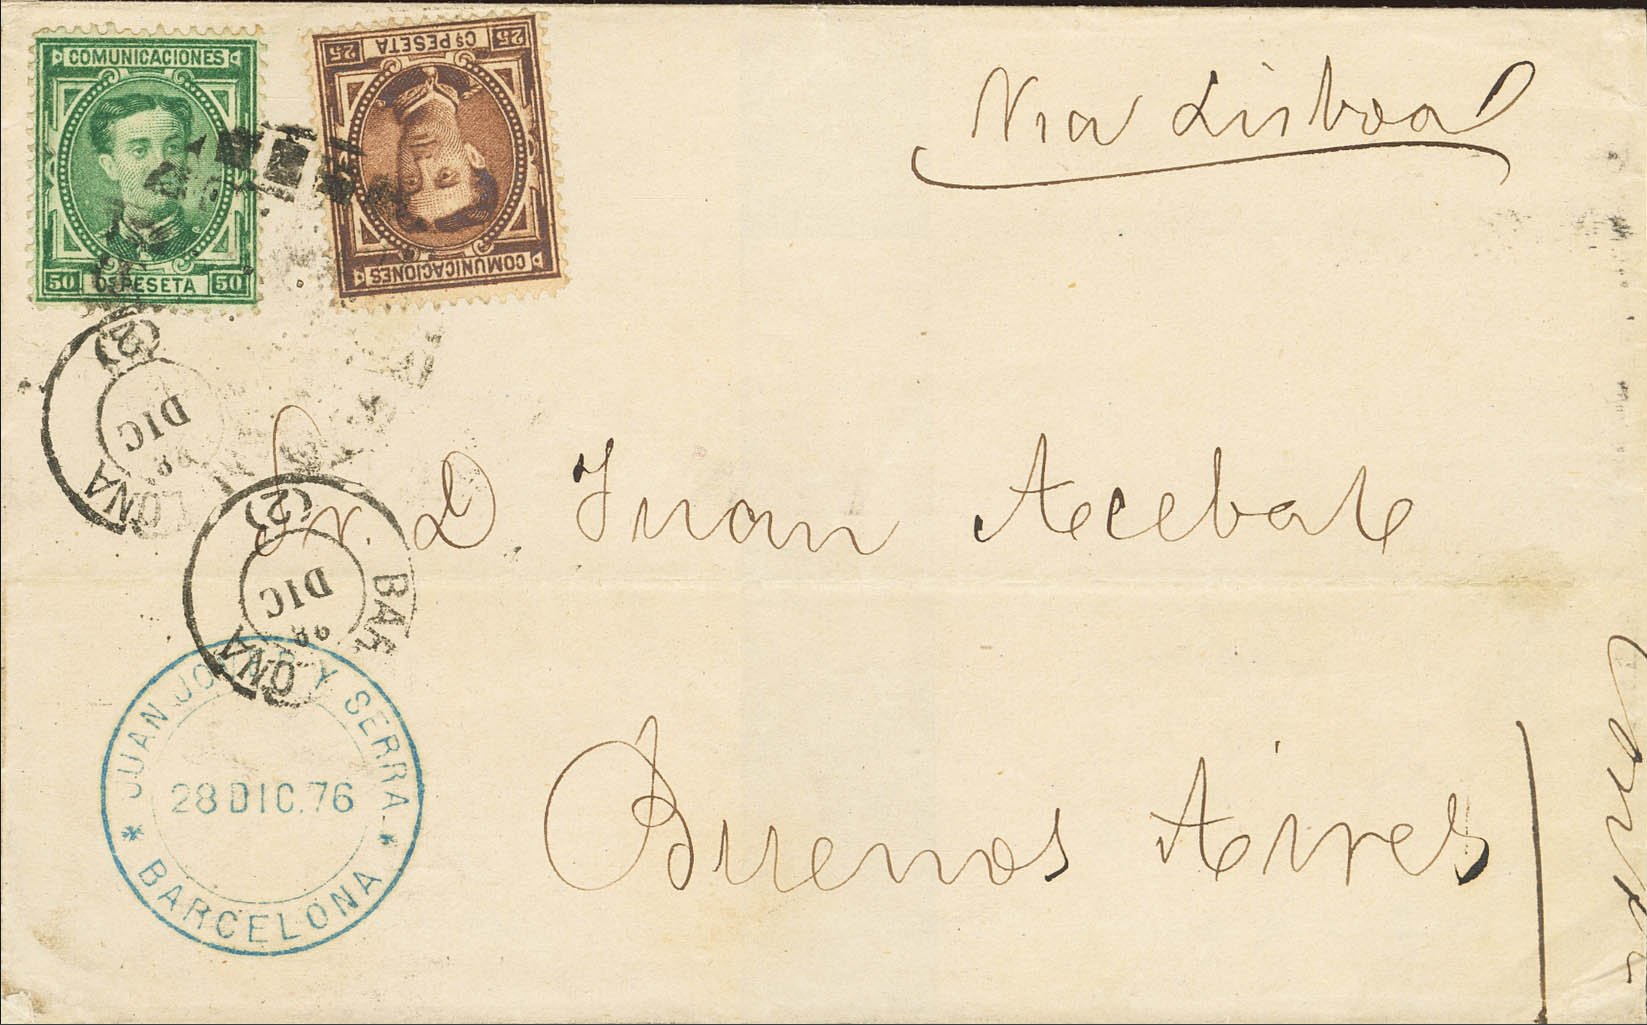 COMUNICACIONES
50 Cs PESETA 50
25 Cs PESETA 25
COMUNICACIONES
Via Lisboa
(2)
DIC
LONA
Sr. D. Juan Acebal
(2)
BAR
DIC
28
ONA
JUAN JO Y SERRA
28 DIC. 76
BARCELONA
Buenos Aires